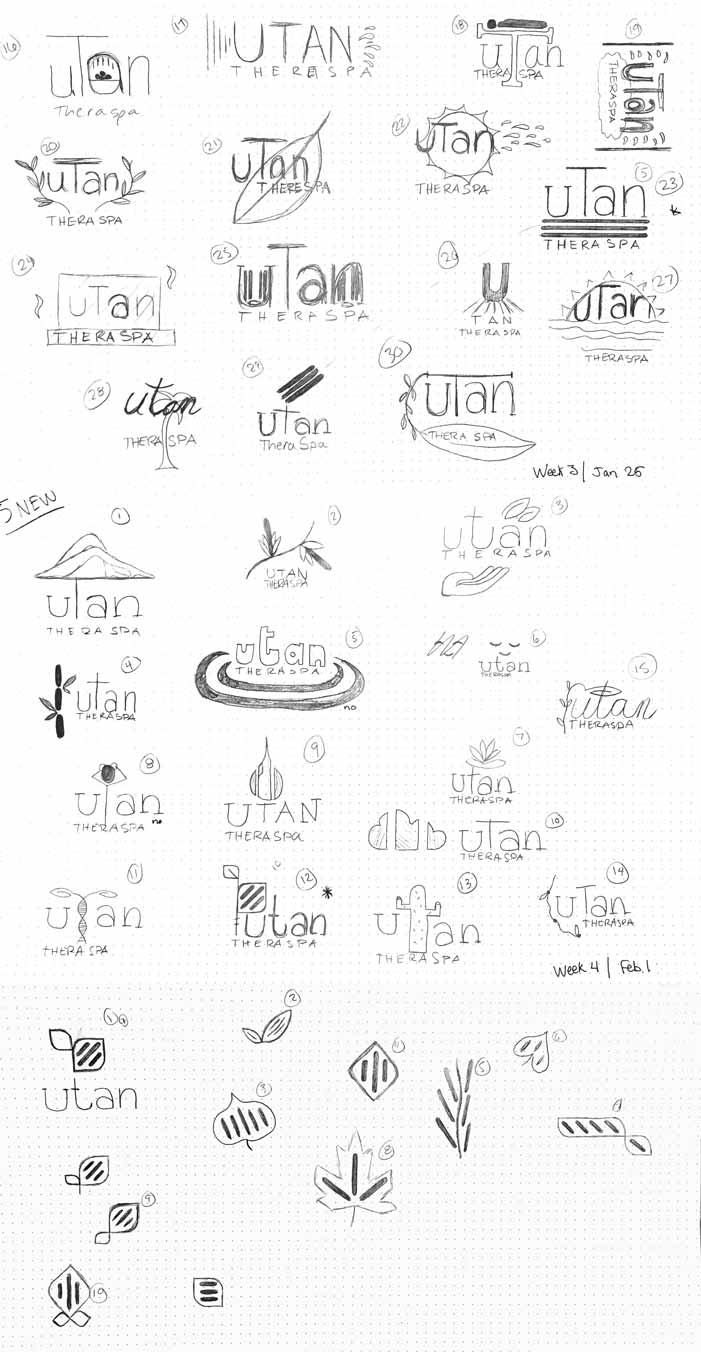 16
uTan
Theraspa
17
UTAN
THERESPA
18
uTan
THERA SPA
19
uTan
THERASPA
20
uTan
THERA SPA
21
uTan
THERESPA
22
uTan
THERASPA
5
23
uTan
THERA SPA
24
uTan
THERA SPA
25
uTan
THERASPA
26
U
TAN
THERA SPA
27
uTan
THERASPA
28
utan
THERA SPA
29
utan
Thera Spa
30
uTan
THERA SPA
Week 3 | Jan 26
5 NEW
1
uTan
THERA SPA
2
UTAN
THERASPA
3
utan
THERASPA
4
utan
THERASPA
5
utan
THERASPA
no
6
utan
THERASPA
15
utan
THERASPA
8
utan
THERASPA
no
9
UTAN
THERASPA
7
utan
THERASPA
10
uTan
THERASPA
11
u an
THERA SPA
12
utan
THERASPA
13
u an
THERASPA
14
uTan
THERASPA
Week 4 | Feb. 1
1
utan
2
3
5
6
8
9